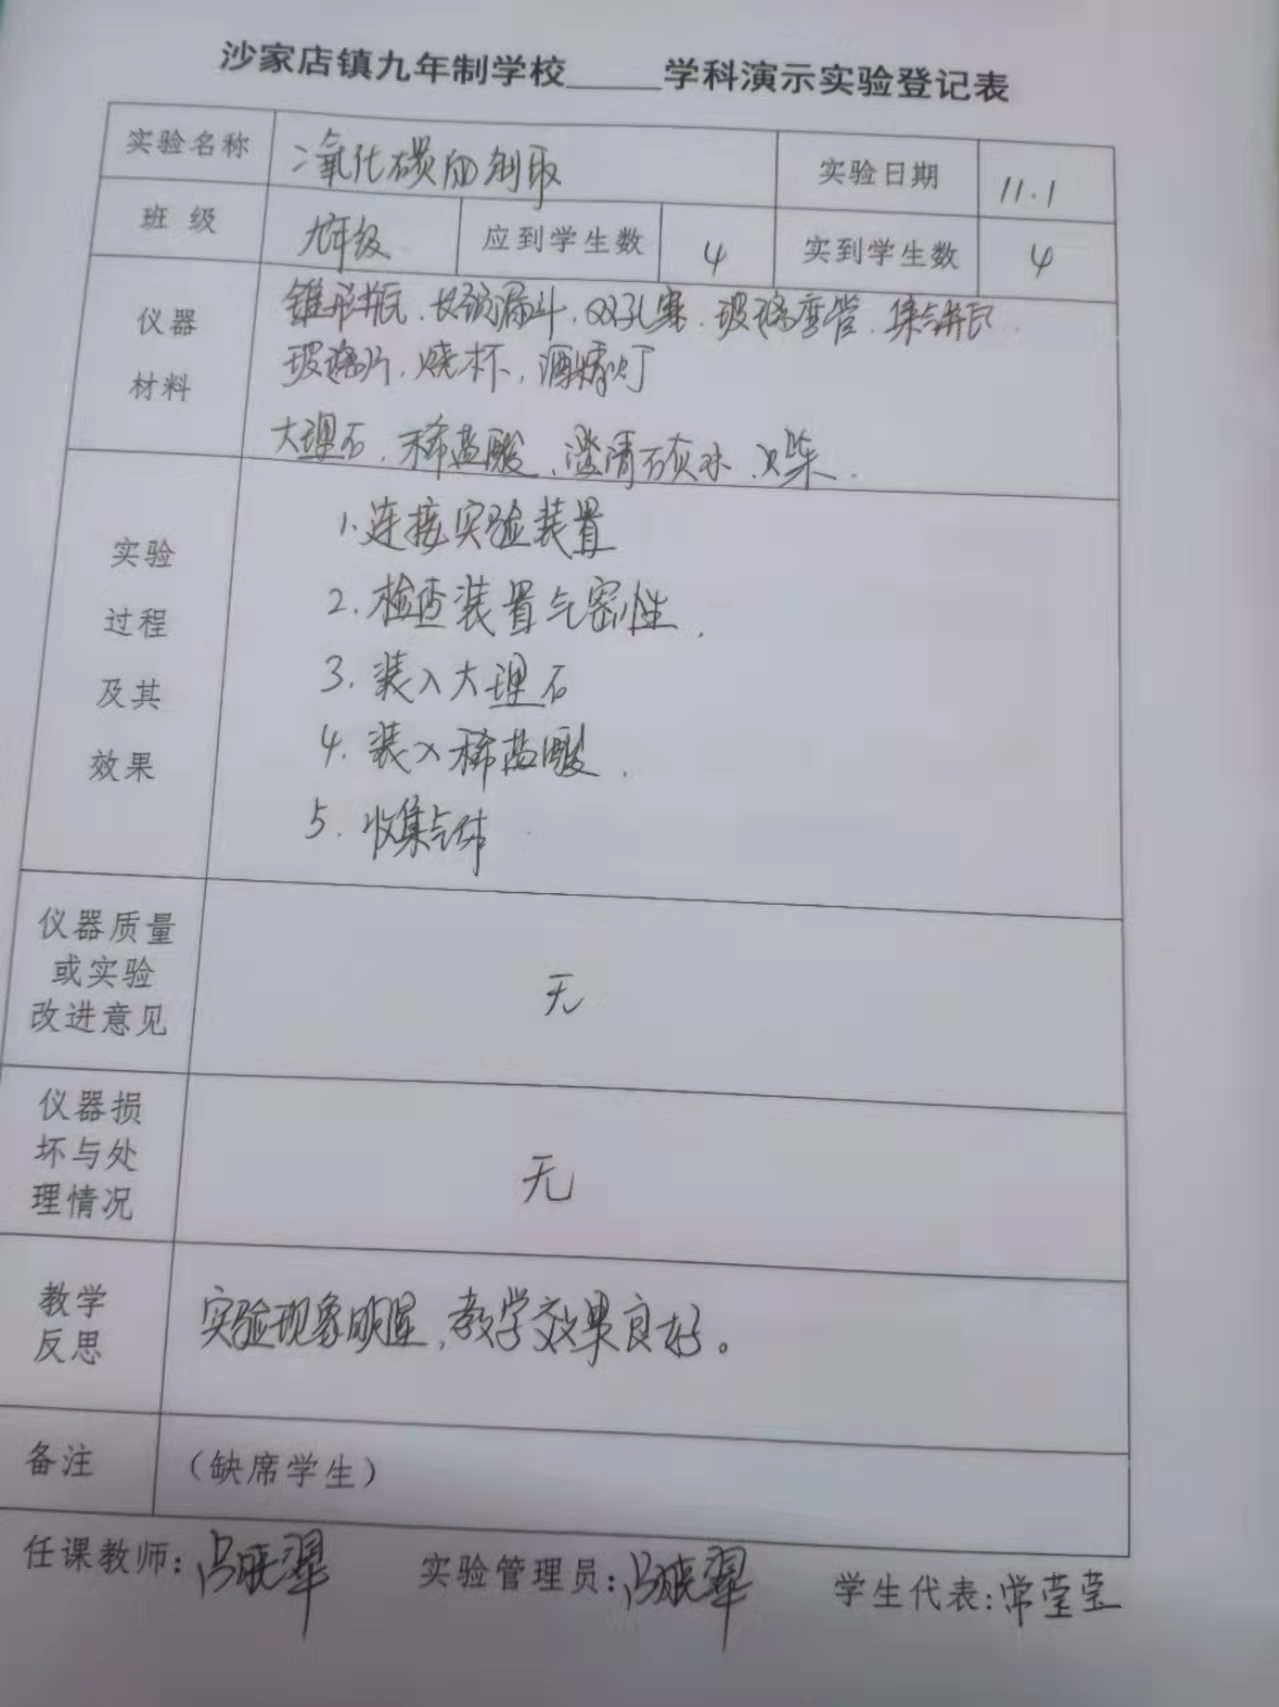 沙家店镇九年制学校_____学科演示实验登记表
实验名称 二氧化碳的制取 实验日期 11.1
班 级 九年级 应到学生数 4 实到学生数 4
仪器 锥形瓶、长颈漏斗、双孔塞、玻璃弯管、集气瓶、
玻璃片、烧杯、酒精灯
材料
大理石、稀盐酸、澄清石灰水、火柴.
1.连接实验装置
实验
2.检查装置气密性.
过程
3.装入大理石
及其
4.装入稀盐酸.
效果
5.收集气体
仪器质量
或实验 无
改进意见
仪器损
坏与处 无
理情况
教学 实验现象明显,教学效果良好。
反思
备注 (缺席学生)
任课教师:冯晓翠 实验管理员:冯晓翠 学生代表:常莹莹